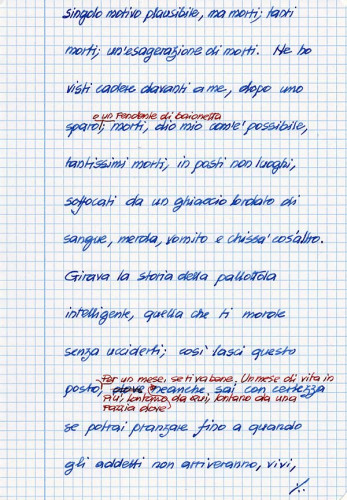 singolo motivo plausibile, ma morti; tanti
morti; un'esagerazione di morti. Ne ho
visti cadere davanti a me, dopo uno
e un fendente di baionetta
sparo, morti, dio mio com'è possibile,
tantissimi morti, in posti non luoghi,
soffocati da un ghiaccio lordato di
sangue, merda, vomito e chissa' cos'altro.
Girava la storia della pallottola
intelligente, quella che ti morde
senza ucciderti; così lasci questo
Per un mese, se ti va bene. Un mese di vita in
posto, dove neanche sai con certezza
Più, lontano da qui, lontano da una
Pazzia dove
se potrai pranzare fino a quando
gli addetti non arriveranno, vivi,